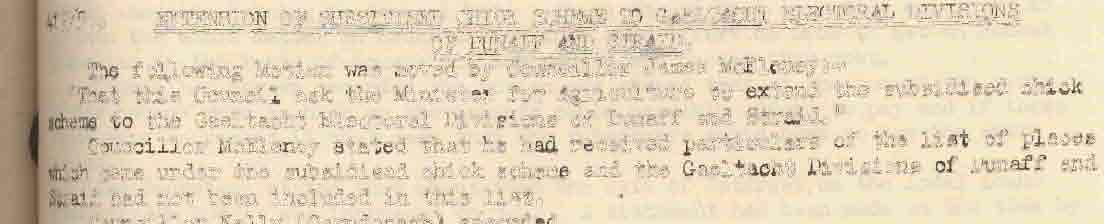 EXTENSION OF SUBSIDISED CHICK SCHEME TO GAELTACHT ELECTORAL DIVISIONS
OF DUNAFF AND STRAID.
The following Motion was moved by Councillor James McEleney:-
"That this Council ask the Minister for Agriculture to extend the subsidised chick
scheme to the Gaeltacht Electoral Divisions of Dunaff and Straid."
Councillor McEleney stated that he had received particulars of the list of places
which came under the subsidised chick scheme and the Gaeltacht Divisions of Dunaff and
Straid had not been included in this list.
Councillor Kelly seconded